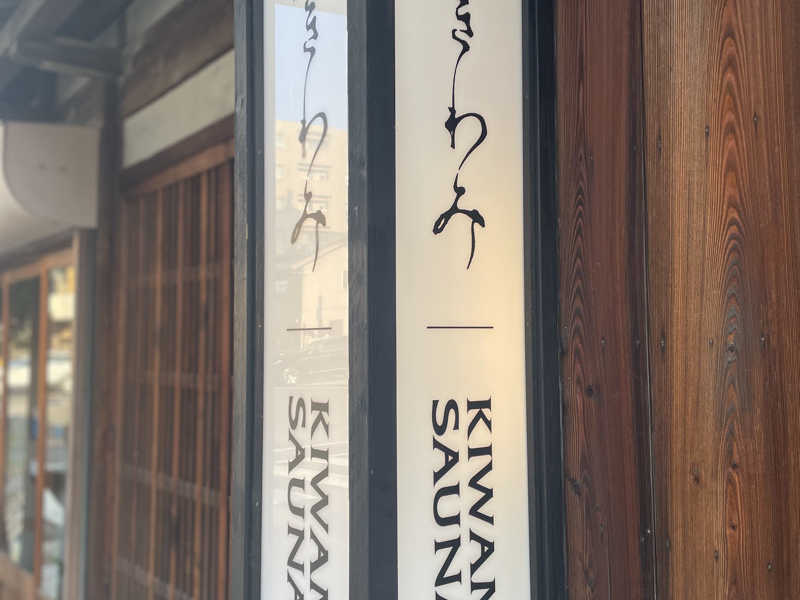 きわみ
KIWAM
SAUNA
きわみ
KIWAM
SAUNA